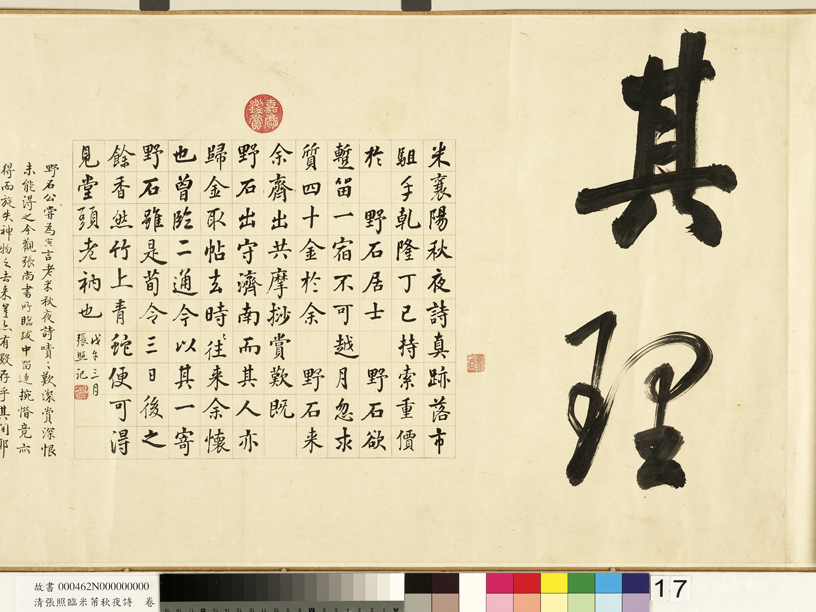 其理
米襄陽秋夜詩真跡落市
駔手乾隆丁巳持索重價
於 野石居士 野石欲
蹔留一宿不可越月忽求
質四十金於余 野石来
余齋出共摩挱賞歎既
野石出守濟南而其人亦
歸金取帖去時往来余懷
也曾臨二通今以其一寄
野石雖是荀令三日後之
餘香然竹上青蛇便可淂
見堂頭老衲也
戊午三月
張照记
野石公嘗為言老米秋夜詩嘖嘖歎深賞深恨
未能得之今觀張尚書所臨跋中留連惋惜竟亦
得而旋失神物之去来豈亦有數存乎其间耶
故書 000462N000000000
清張照臨米芾秋夜詩 卷
17